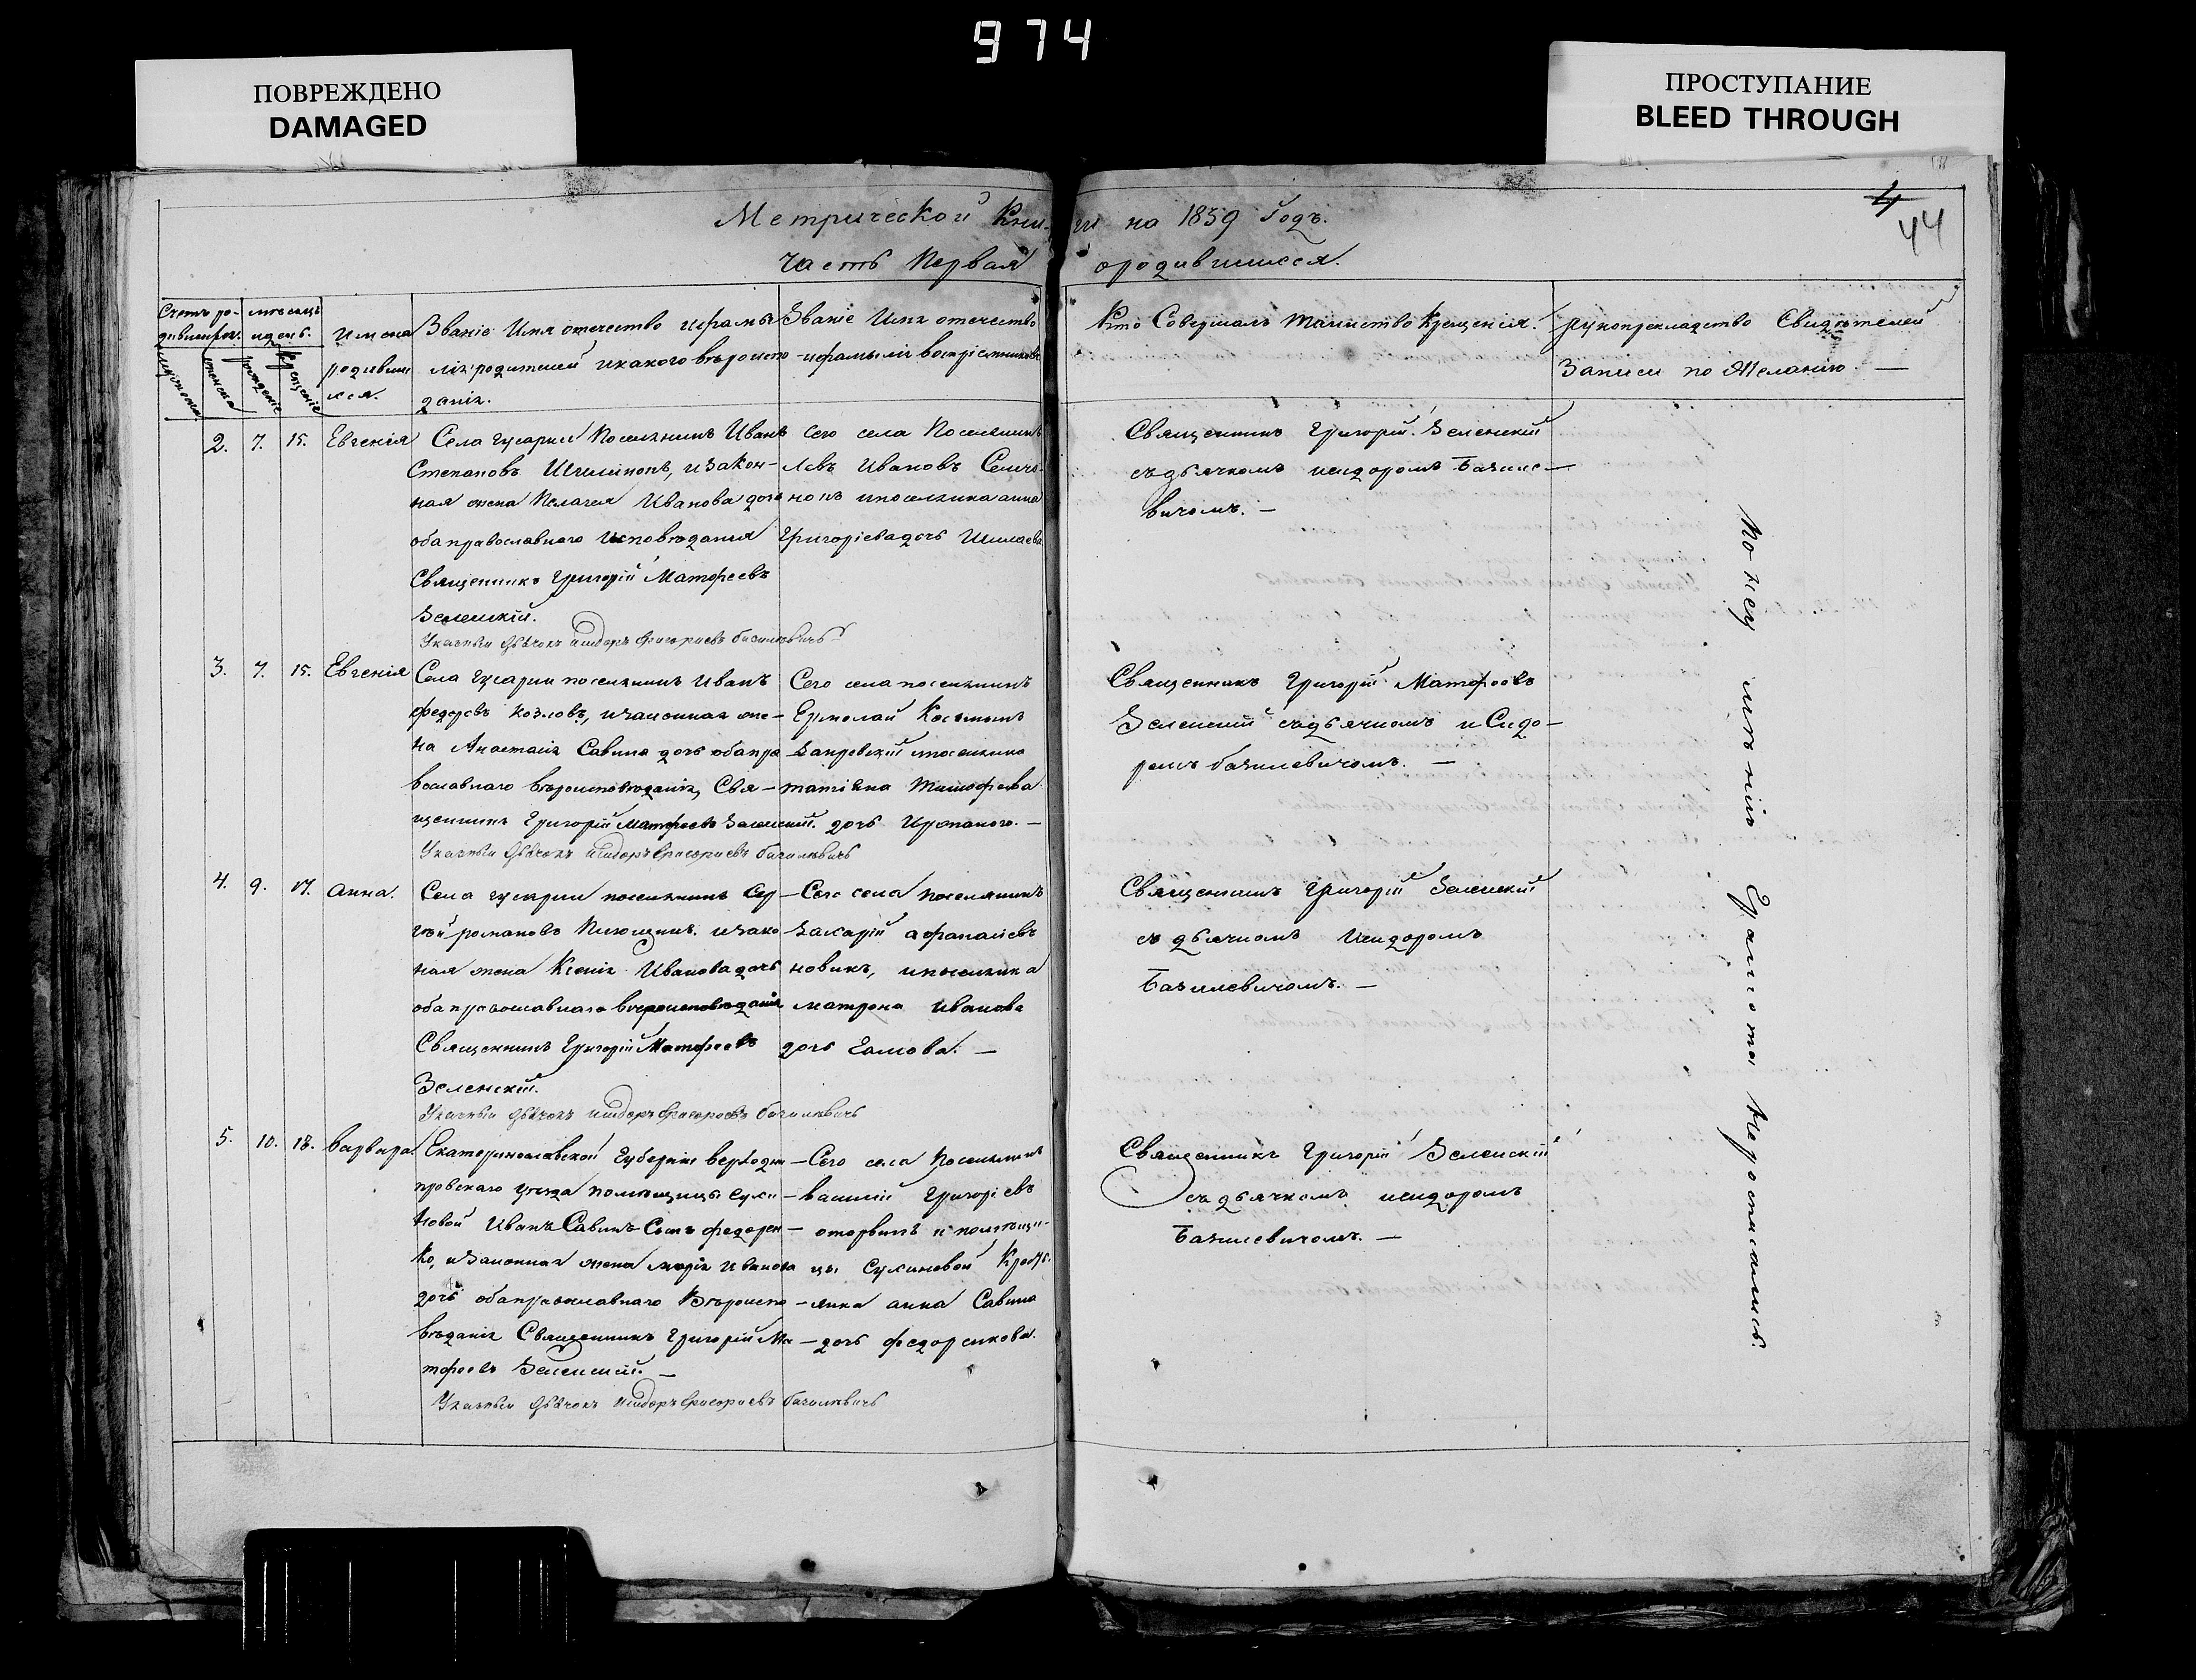 974
ПОВРЕЖДЕНО
DAMAGED
ПРОСТУПАНИЕ
BLEED THROUGH
4
44
Метрической Книги на 1859 Годъ.
Часть Первая ородившихся.
Счетъ ро-
дившихся.
мѣсяцъ
и день.
рожденіе
крещеніе
Имена
родивши
хся.
Званіе Имя отечество ифами
ліи родителей икакого вѣроиспо
данія.
Званіе Имя отечество
ифамилія воспріемниковъ
Кто Совершалъ Таинство Крещенія.
рукоприкладство Свидѣтелей
Записи по Желанію. —
2. 7. 15. Евгенія
Села гусарки Поселянинъ Иванъ
Степановъ, изакон-
ная жена Пелагея Иванова дочь
оба православнаго Исповѣданія
Священникъ Григорій Матфеевъ
Зеленскій.
Указный дьячокъ исидоръ григориевъ базилевичъ
Сего села Поселянинъ
Левъ Ивановъ
ипоселянка анна
Григоріева дочь
Священникъ Григорій Зеленскій
съ дьячкомъ исидоромъ Базиле—
вичомъ. —
3. 7. 15. Евгенія
Села гусарки поселянинъ иванъ
федоровъ козловъ, изаконная же—
на Анастасія Савина дочь оба пра
вославнаго вѣроисповѣданія, Свя—
щенникъ Григорій Матфеевъ Зеленскій.
Указный дьячокъ исидоръ григориевъ базилевичъ
Сего села поселянинъ
Ермолай
ипоселянка
татіяна Тимофеева
дочь
Священникъ Григорій Матфеевъ
Зеленский съ дьячкомъ и Сидо—
ромъ базилевичомъ. —
4. 9. 17. Анна.
Села гусарки поселянинъ Сер
гѣй романовъ изако
ная жена Ксенія Иванова дочь
оба православнаго вѣроисповѣданія
Священникъ Григорій Матфеевъ
Зеленскій.
Указный дьячокъ исидоръ григориевъ базилевичъ
Сего села Поселянинъ
Захарій афанасіевъ
новикъ, ипоселянка
матрона иванова
дочь —
Священникъ Григорій Зеленскій
съ дьячкомъ Исидоромъ
Базилевичомъ. —
5. 10. 18. Варвара
Екатеринославской Губерніи верходне
провскаго уезда помѣщицы Сухи—
новой Иванъ Савинъ Сынъ федорен—
ко, изаконная жена марія иванова
дочь оба православнаго Вѣроиспо—
вѣданія Священникъ Григорій Ма—
тфеевъ Зеленский. —
Указный дьячокъ исидоръ григориевъ базилевичъ
Сего села Поселянинъ
василий Григоріевъ
и помѣщи-
цы Сухиновой Кресть-
янка анна Савина
дочь федоренкова.
Священникъ Григорій Зеленскій
съ дьячкомъ исидоромъ
Базилевичомъ. —